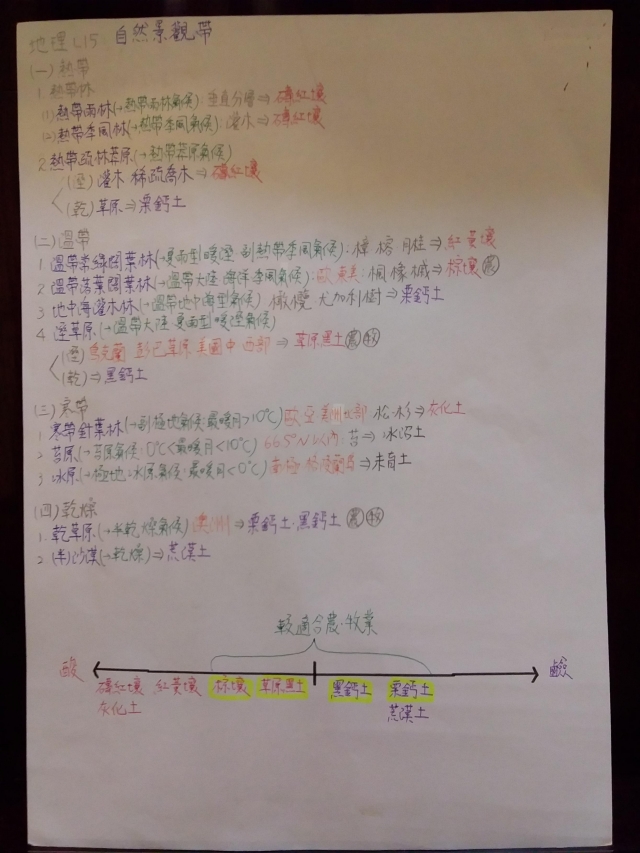 地理 L15: 自然景觀帶
(一) 熱帶
1. 熱帶林
(1) 熱帶雨林(→熱帶雨林氣候): 垂直分層⇒磚紅壤
(2) 熱帶季風林(→熱帶季風氣候): 灌木⇒磚紅壤
2. 熱帶疏林莽原(→熱帶莽原氣候)
(溼) 灌木 稀疏喬木⇒磚紅壤
(乾) 草原⇒栗鈣土
(二) 溫帶
1. 溫帶常綠闊葉林(→夏雨型暖溼 副熱帶季風氣候): 樟 楠 月桂⇒紅黃壤
2. 溫帶落葉闊葉林(→溫帶大陸 海洋 季風氣候): 歐 東美: 楓 橡 槭⇒棕壤 農
3. 地中海灌木林(→溫帶地中海型氣候) 橄欖 尤加利樹⇒栗鈣土
4. 溼草原(→溫帶大陸 夏雨型暖溼氣候)
(溼) 烏克蘭 彭巴草原 美國中西部⇒草原黑土 農 牧
(乾)⇒黑鈣土
(三) 寒帶
1. 寒帶針葉林(→副極地氣候: 最暖月>10°C) 歐 亞 美洲北部 松 杉⇒灰化土
2. 苔原(→苔原氣候: 0°C<最暖月<10°C) 66.5°N以內: 苔⇒冰沼土
3. 冰原(→極地冰原氣候: 最暖月<0°C) 南極 格陵蘭島⇒未育土
(四) 乾燥
1. 乾草原(→半乾燥氣候) 澳洲⇒栗鈣土.黑鈣土 農 牧
2. (半)沙漠(→乾燥)⇒荒漠土
較適合農.牧業
酸 鹼
磚紅壤 紅黃壤 棕壤 草原黑土 黑鈣土 栗鈣土
灰化土 荒漠土